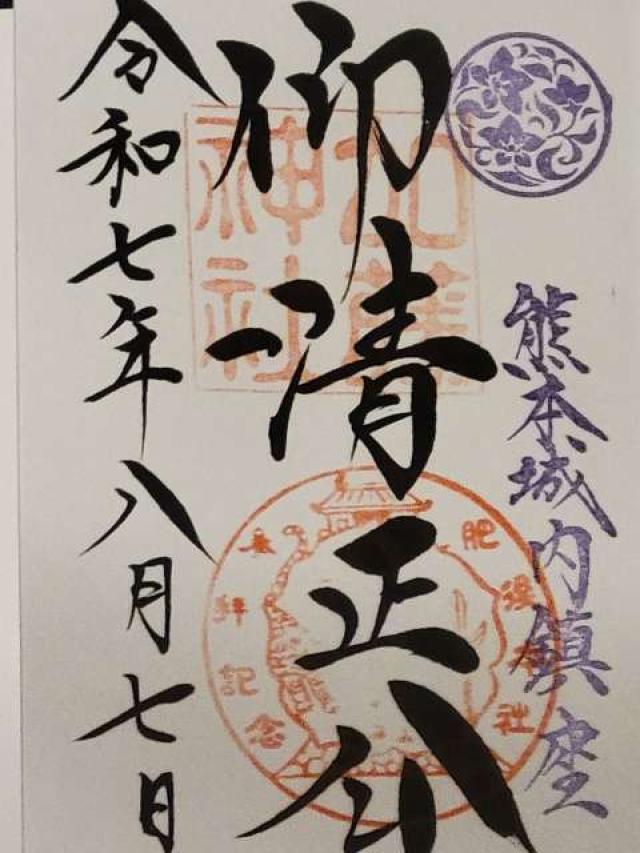 熊本城内鎮座
仰清正公
加藤
神社
肥後本社
参拝記念
令和七年八月七日